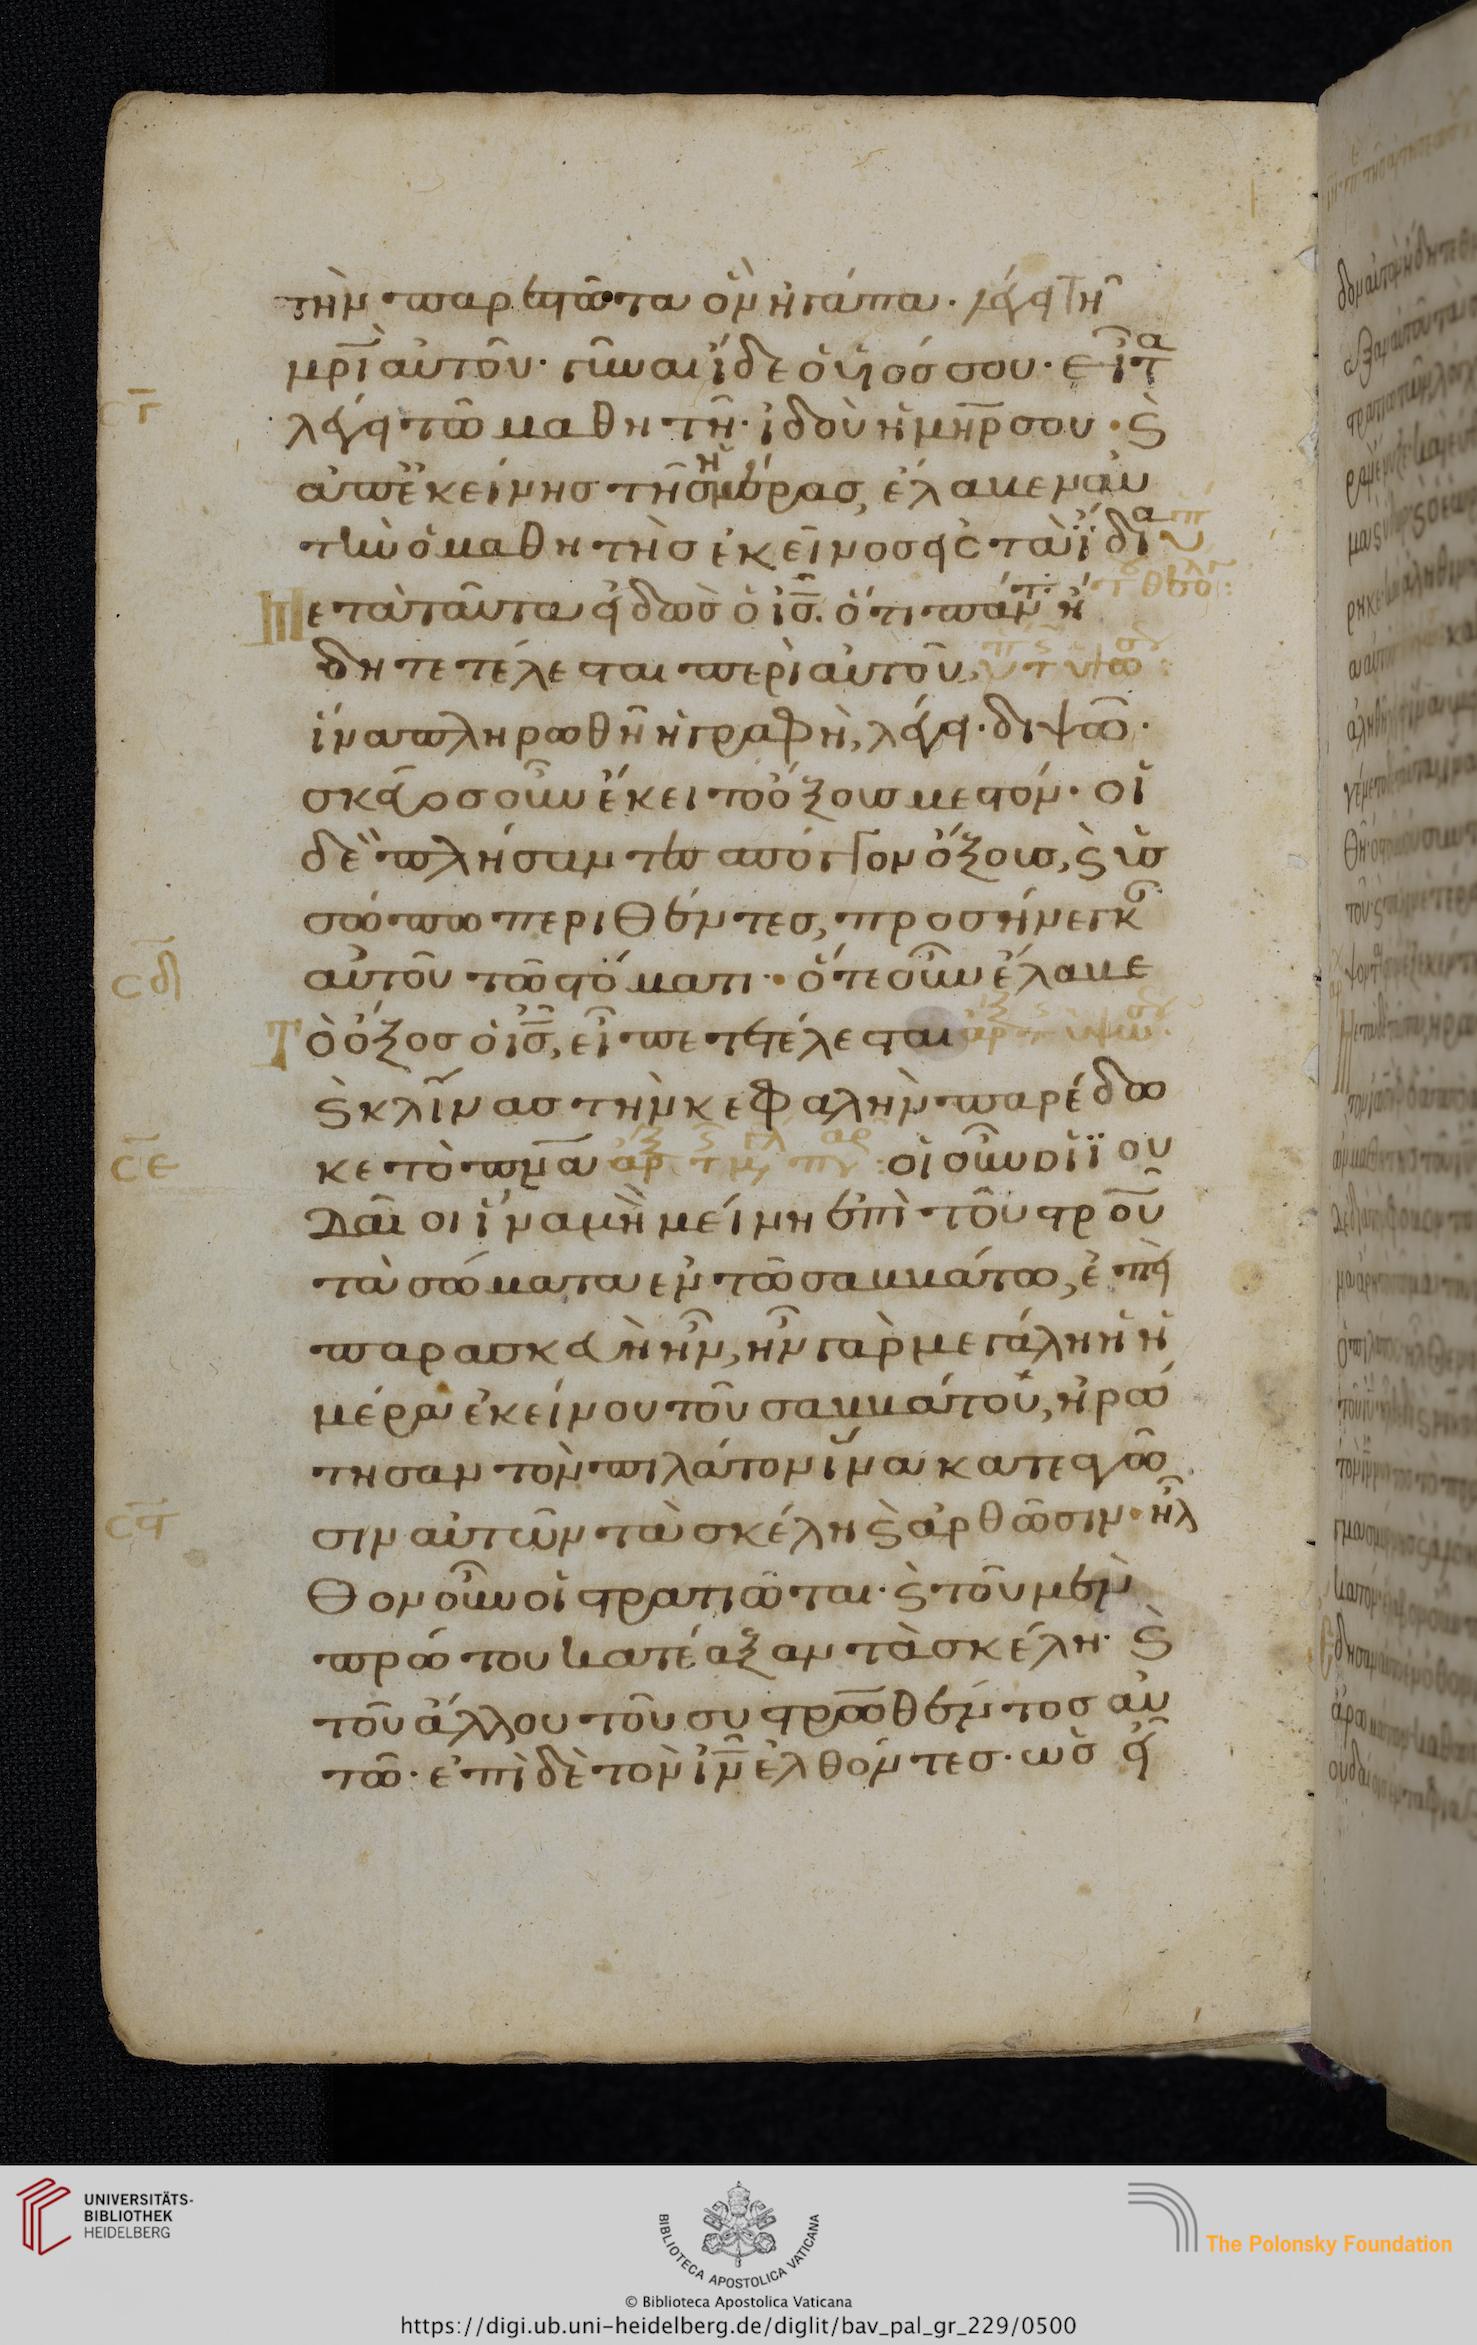 τὴν παρεστῶτα ὃν ἠγάπα· λέγει τῆ
μρὶ αὐτοῦ· γύναι ἴδε ὁ υἱός σου· εἶτα
σγ
λέγει τῶ μαθητῆ· ἰδοὺ ἡ μηρ σου· καὶ
ἀπ' ἐκείνης τῆς ἡμέρας, ἔλαβεν αὐ
τὴν ὁ μαθητὴς ἐκεῖνος εἰς τὰ ἴδια
Μετὰ ταῦτα εἰδὼς ὁ ις. ὅτι πάντ ἤ
δη τετέλεσται περὶ αὐτοῦ,
ἵνα πληρωθῆ ἡ γραφὴ, λέγει· διψῶ·
σκεῦος οὖν ἔκειτο ὄξους μεστόν· οἱ
δὲ πλήσαντες σπόγγον ὄξους, καὶ ὑσ
σώπω περιθέντες, προσήνεγκ
σδ
αὐτοῦ τῶ στόματι· ὅτε οὖν ἔλαβε
Τὸ ὄξος ὁ ις, εἶπε τετέλεσται
καὶ κλίνας τὴν κεφαλὴν παρέδω
σε
κε τὸ πνα οἱ οὖν οἱ ἰου
δαῖοι ἵνα μὴ μείνη ἐπὶ τοῦ στροῦ
τὰ σώματα ἐν τῶ σαββάτω, ἐπεὶ
παρασκευὴ ἦν, ἦν γὰρ μεγάλη ἡ ἡ
μέρα ἐκείνου τοῦ σαββάτου, ἠρώ
τησαν τὸν πιλάτον ἵνα κατεαγῶ
σς
σιν αὐτῶν τὰ σκέλη καὶ ἀρθῶσιν· ἦλ
θον οὖν οἱ στρατιῶται· καὶ τοῦ μὲν
πρώτου κατέαξαν τὰ σκέλη· καὶ
τοῦ ἄλλου τοῦ συστρωθέντος αὐ
τῶ· ἐπὶ δὲ τὸν ιν ἐλθόντες· ὡς εἶ
UNIVERSITÄTS-
BIBLIOTHEK
HEIDELBERG
BIBLIOTECA APOSTOLICA VATICANA
The Polonsky Foundation
© Biblioteca Apostolica Vaticana
https://digi.ub.uni-heidelberg.de/diglit/bav_pal_gr_229/0500